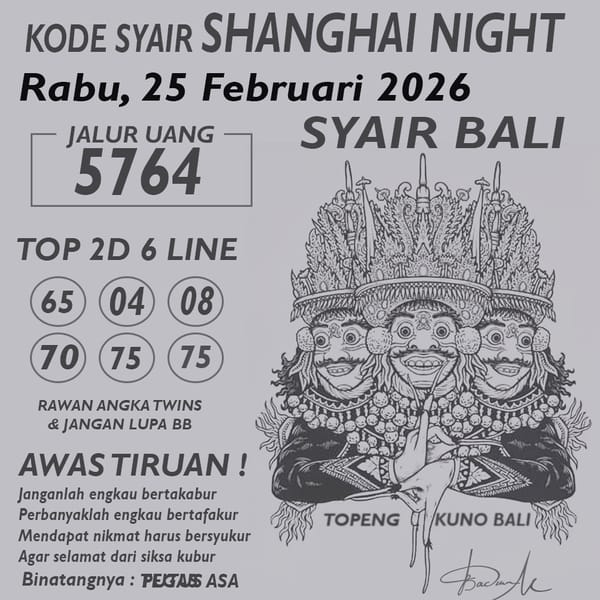 KODE SYAIR SHANGHAI NIGHT
Rabu, 25 Februari 2026
SYAIR BALI
JALUR UANG
5764
TOP 2D 6 LINE
65 04 08
70 75 75
RAWAN ANGKA TWINS
& JANGAN LUPA BB
AWAS TIRUAN !
Janganlah engkau bertakabur
Perbanyaklah engkau bertafakur
Mendapat nikmat harus bersyukur
Agar selamat dari siksa kubur
Binatangnya : ASA
TOPENG KUNO BALI